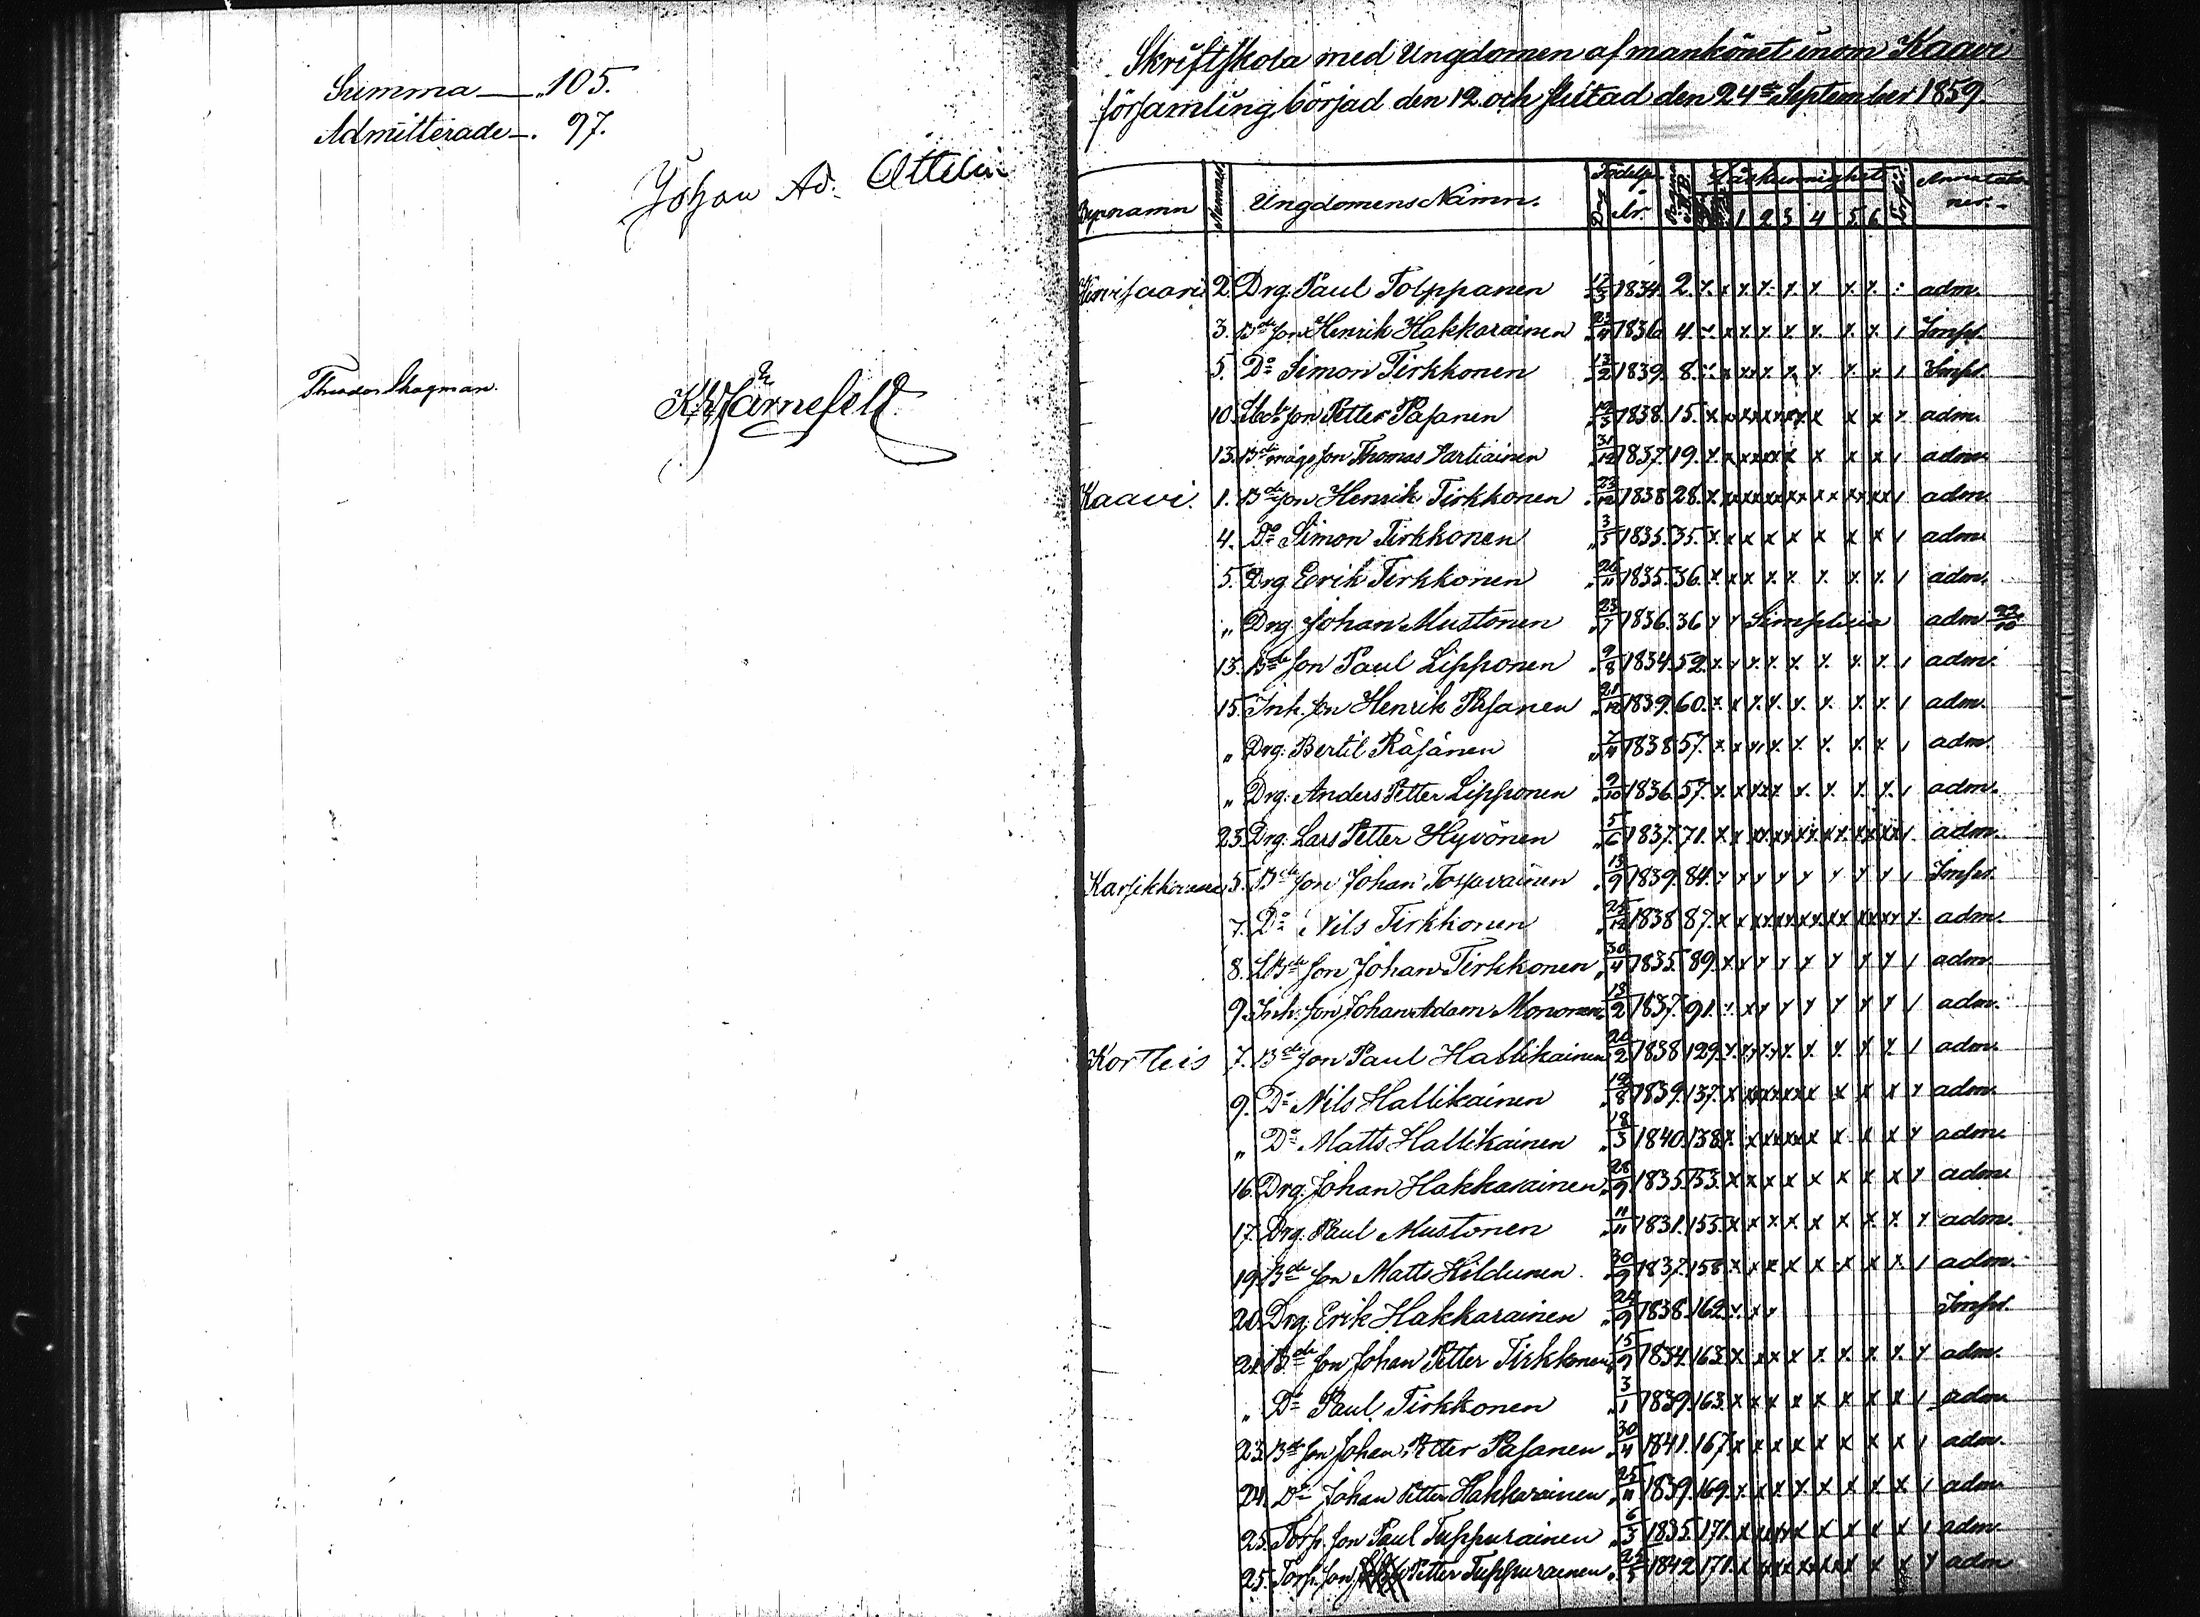 Summa — 105.
Admitterade —. 97.
Johan Ad. Ottelin
Theodor Skogman.
K. W. Järnefelt
Skriftskola med Ungdomen af mankönet inom Kaavi
församling, börjad den 12. och slutad den 24de September 1859.
Byanamn Nummer Ungdomens Namn. Födelse Dag År. Pagina Läskunnighet 1 2 3 4 5 6 Annotationer.
2. Drg. Paul Tolppanen 12/3 1834. 2. x x x x x x x x adm.
3. Bde son Henrik Hakkarainen 1836 4. x x x x x x x Impl.
5. Do Simon Tirkkonen 13/2 1839. 8. x x x x x x x Impl.
10. son Petter Pasanen 1838. 15. x x x x x x x x x x x adm.
13. Bde mågs son Thomas Partiainen 31/12 1837. 19. x x x x x x x x x x adm.
Kaavi. 1. Bde son Henrik Tirkkonen 23/12 1838. 28. x x x x x x x x x x x x x x adm.
4. Do Simon Tirkkonen 3/5 1835. 35. x x x x x x x x adm
5. Drg Eerik Tirkkonen 26/11 1835. 36. x x x x x x x x adm.
" Drg. Johan Mustonen 23/7 1836. 36 x x Simplicia adm 22/10
13. Bde son Paul Lipponen 9/8 1834. 52. x x x x x x x x adm.
15. Inh. son Henrik Pasanen 21/12 1839. 60. x x x x x x x x adm.
" Drg. Bertil Räsänen 1838. 57. x x x x x x x x adm.
" Drg. Anders Petter Lipponen 9/10 1836. 57. x x x x x x x x x adm.
23. Drg. Lars Petter Hyvönen 5/6 1837. 71. x x x x x x x x x x x x x adm.
5. Bde son Johan Toivainen 13/9 1839. 84. x x x x x x x x Impl.
7. Do Nils Tirkkonen 25/12 1838 87. x x x x x x x x x x x x x x adm.
8. LBde son Johan Tirkkonen 30/4 1835. 89. x x x x x x x x adm.
9. Inh. son Johan Adam Mononen 13/2 1837. 91. x x x x x x x x adm.
Kortteis 7. Bde son Paul Hallikainen 26/2 1838 129. x x x x x x x x x adm.
9. Do Nils Hallikainen 19/8 1839. 137. x x x x x x x x x x x adm.
" Do Matts Hallikainen 18/3 1840. 138. x x x x x x x x x x x adm.
16. Drg. Johan Hakkarainen 28/9 1835. 153. x x x x x x x x x adm.
17. Drg. Paul Mustonen 11/11 1831. 153. x x x x x x x x x adm.
19. Bde son Matts Hildunen 30/9 1837. 158. x x x x x x x x adm.
20. Drg. Erik Hakkarainen 24/9 1838. 162. x x x Impl.
21. Bde son Johan Petter Tirkkonen 15/9 1834. 163. x x x x x x x x x adm.
" Do Paul Tirkkonen 3/1 1839. 163. x x x x x x x x adm
23. Bde son Johan Petter Pasanen 30/4 1841. 167. x x x x x x x x adm.
24. Do Johan Petter Hakkarainen 25/11 1839. 169. x x x x x x x x adm
25. Torp. son Paul Tuppurainen 6/3 1835. 171. x x x x x x x x x adm.
25. Torp. son Petter Tuppurainen 25/5 1842 171. x x x x x x x x x x x adm